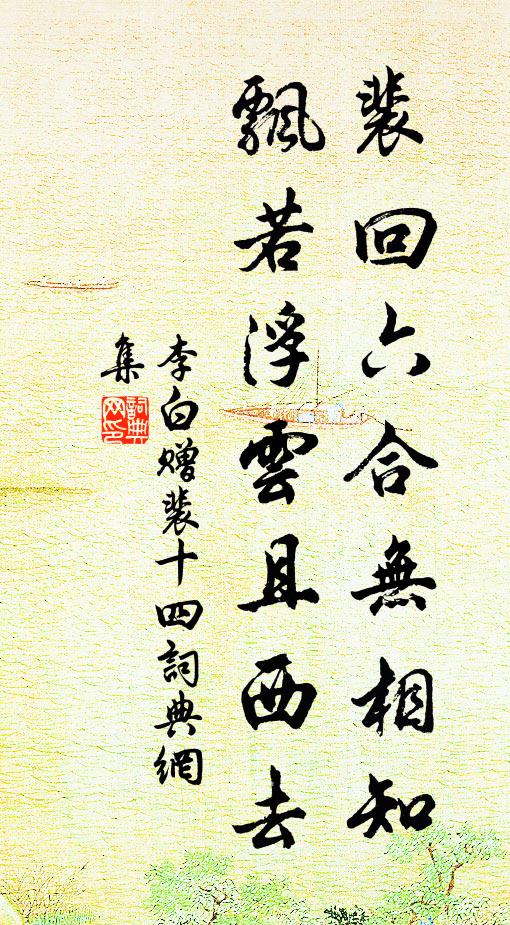 裴回六合無相知
飄若浮雲且西去
李白贈裴十四詞典網
集
詞典
网印